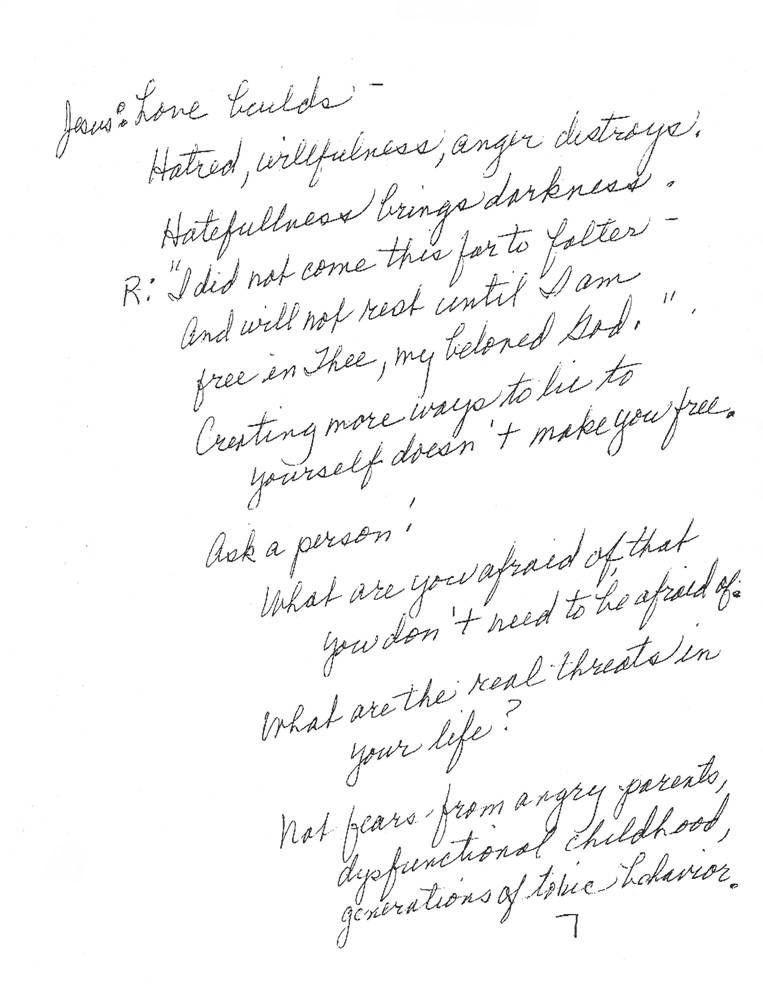 Jesus: Love builds -
Hatred, willfulness, anger destroys.
Hatefullness brings darkness.
R: "I did not come this far to falter -
And will not rest until I am
free in Thee, my beloved God."
Creating more ways to lie to
yourself doesn't make you free.
Ask a person:
What are you afraid of, that
you don't need to be afraid of.
What are the real threats in
your life?
Not fears from angry parents,
dysfunctional childhood,
generations of toxic behavior.
7